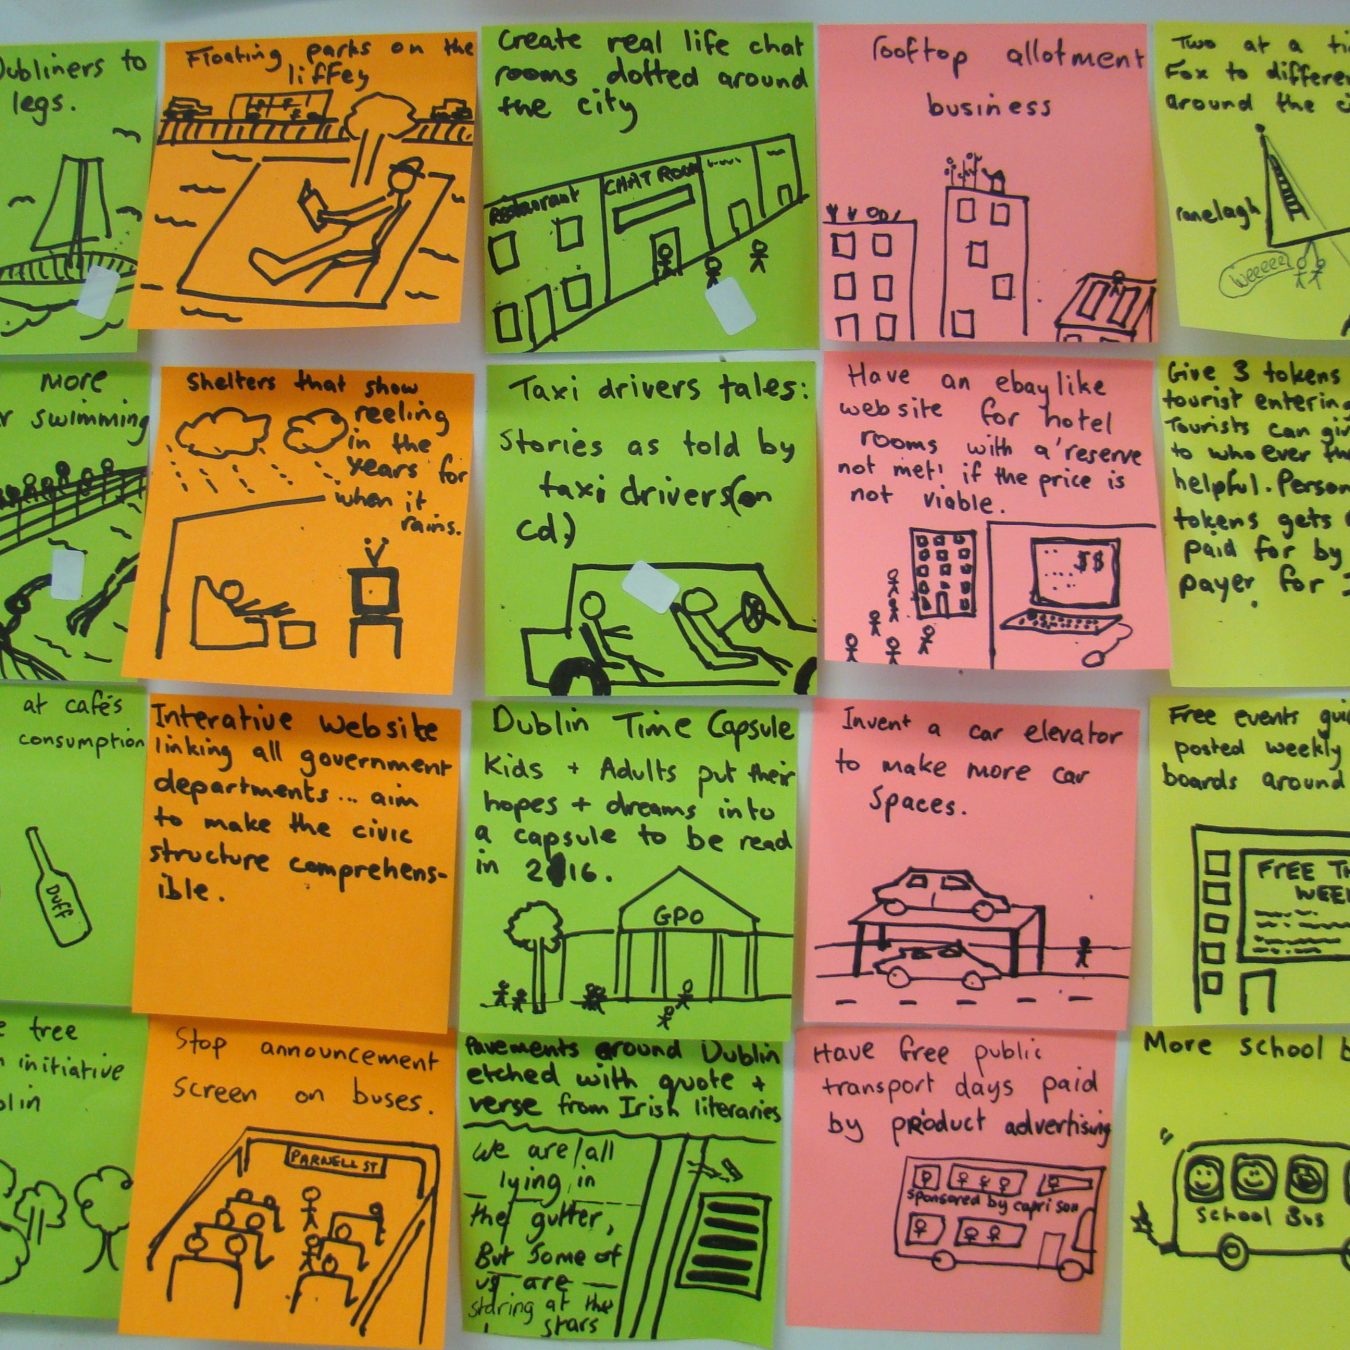 Dubliners to
legs.
Floating parks on the
liffey
Create real life chat
rooms dotted around
the city
Restaurant
CHAT ROOM
rooftop allotment
business
Two at a
Fox to
around the
ranelagh
weeeeee
more
swimming
Shelters that show
reeling
in the
years for
when it
rains.
Taxi drivers tales:
Stories as told by
taxi drivers(on
cd)
Have an ebay like
website for hotel
rooms with a 'reserve
not met' if the price is
not viable.
$$
Give 3 tokens
tourist
Tourists can
to who ever
helpful.
tokens gets
paid for by
payer for
at cafés
consumption
Duff
Interative website
linking all government
departments... aim
to make the civic
structure comprehens-
ible.
Dublin Time Capsule
Kids + Adults put their
hopes + dreams into
a capsule to be read
in 2016.
GPO
Invent a car elevator
to make more car
Spaces.
Free events
posted weekly
boards around
FREE
tree
initiative
Stop announcement
screen on buses.
PARNELL ST
Pavements around Dublin
etched with quote +
verse from Irish literaries
We are all
lying in
the gutter,
But Some of
us are
staring at the
stars
Have free public
transport days paid
by product advertising
sponsored by capri son
More school
School Bus